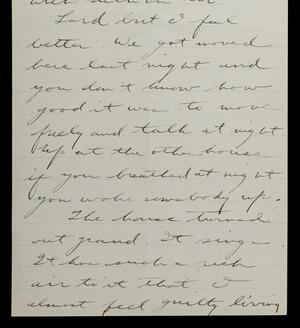 Lord but I feel
better. We got moved
here last night and
you don't know how
good it was to move
freely and talk at night.
Up at the other house
if you breathed at night
you woke somebody up.
The house turned
out grand. It sings.
It has such a rich
air to it that I
almost feel guilty living